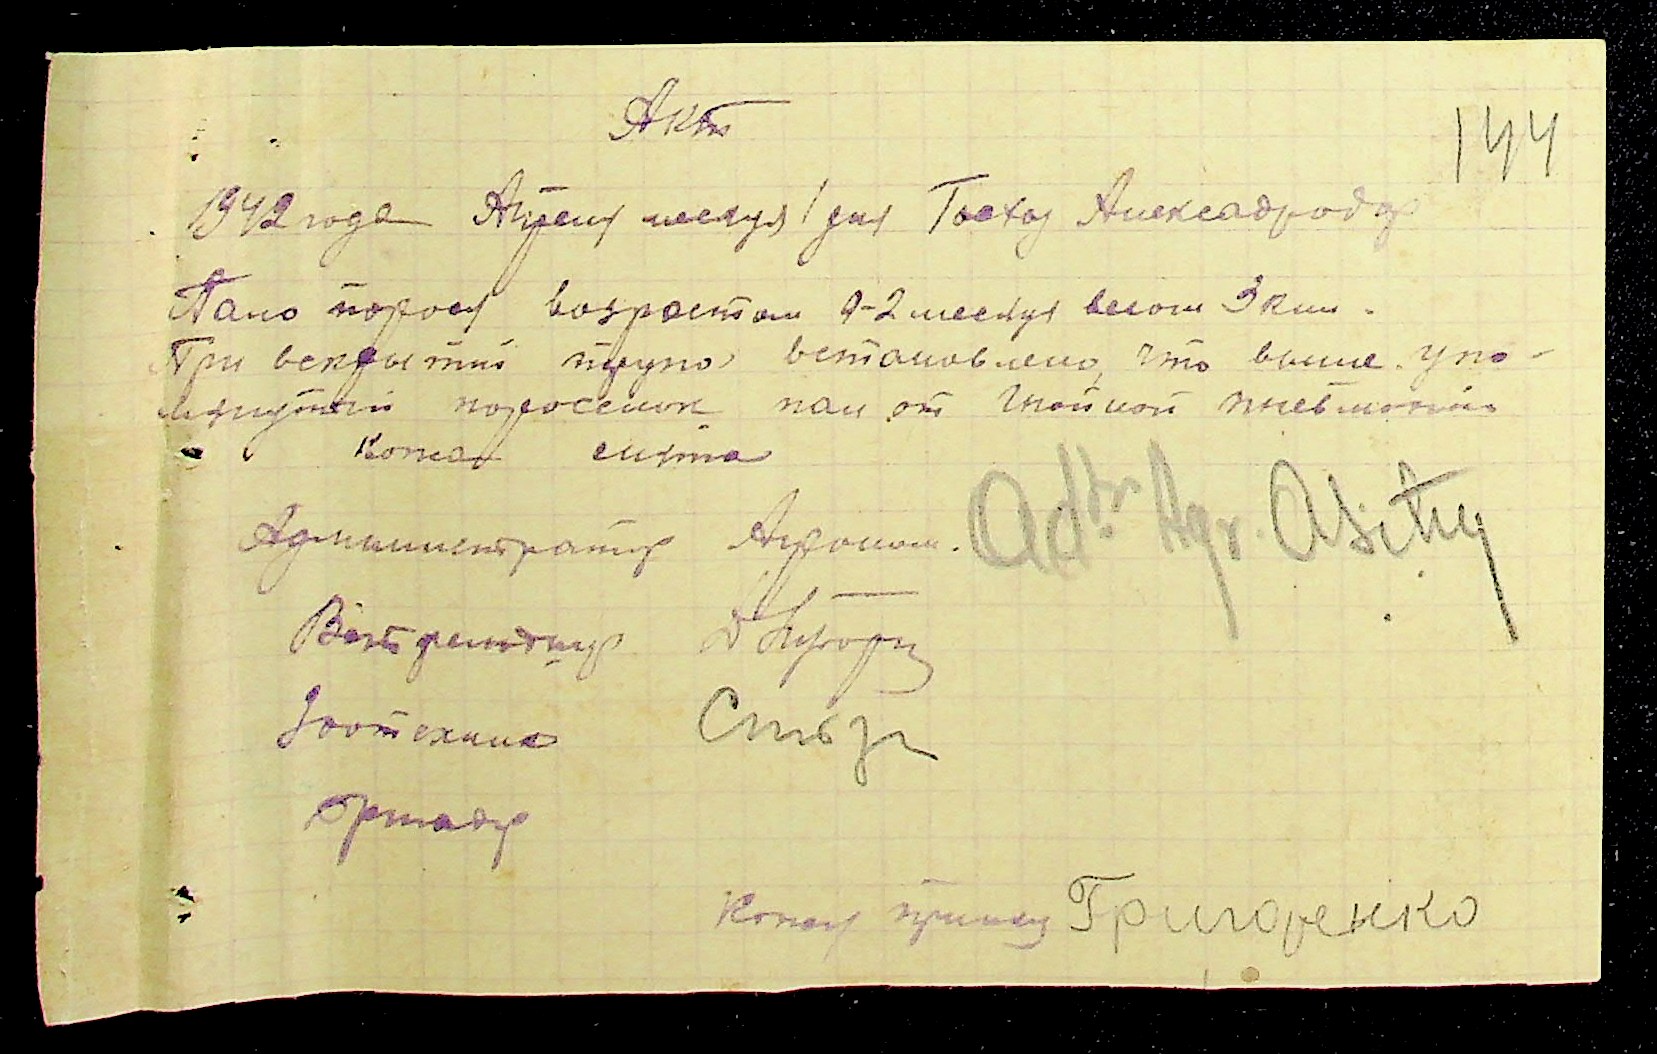 Акт
144
1942 года Апреля месяца 1 дня Госхоз Александродар
Пало порося возрастом 0-2 месяца весом 3 клм.
При вскрытии трупа встановлено, что выше упо-
мянутый поросенок пал от гнойной пневмонии
Кожа снята
Администратор Агроном. Adtr. Agr.
Ветфельдшер
Зоотехник
Бригадир
Кожу принял Григоренко